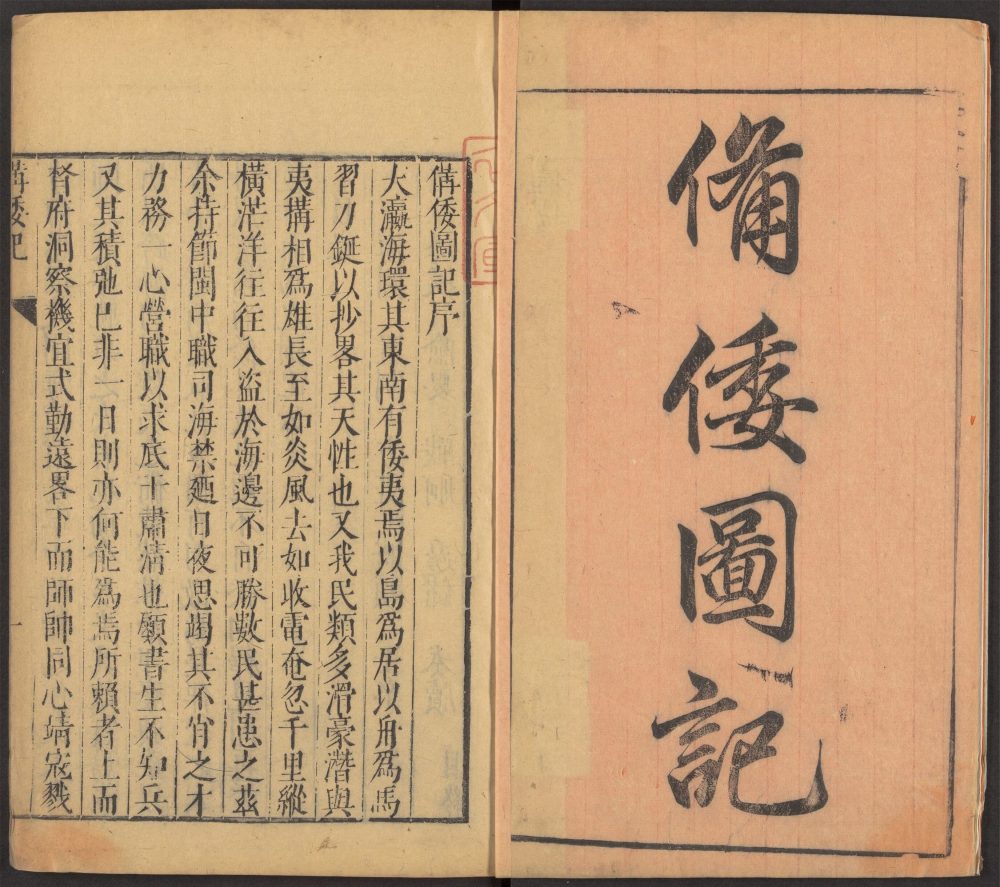 備倭圖記
備倭圖記序
大瀛海環其東南有倭夷焉以島爲居以舟爲馬
習刀鋋以抄畧其天性也又我民類多滑豪潛與
夷搆相爲雄長至如炎風去如收電奄忽千里縱
橫茫洋往往入盜於海邊不可勝數民甚患之茲
余持節閩中職司海禁廼日夜思竭其不肖之才
力務一心營職以求底于肅清也顧書生不知兵
又其積弛已非一日則亦何能爲焉所賴者上而
督府洞察機宜式勤遠畧下而師帥同心靖寇戮
備倭記
一